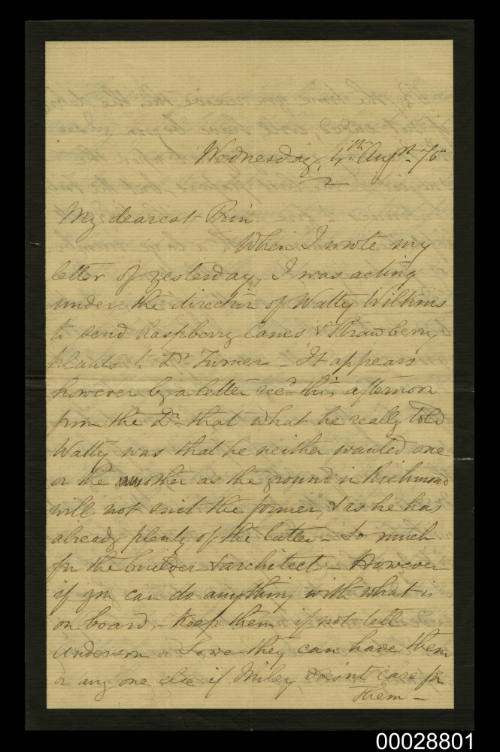 Wednesday, 4th Augst 76
My dearest Prin
When I wrote my
letter of yesterday, I was acting
under the direction of Watty Wilkins
to send Raspberry Canes & Strawberry
plants to Dr Turner - It appears
however by a letter recd this afternoon
from the Dr that what he really told
Watty was that he neither wanted one
or the other as the ground in Richmond
will not suit the former & as he has
already plenty of the latter - So much
for the builder & architect - However
if you can do anything with what is
on board - Keep them if not tell
Anderson & Lowe they can have them
or any one else if Miley doesn't care for
them -
00028801